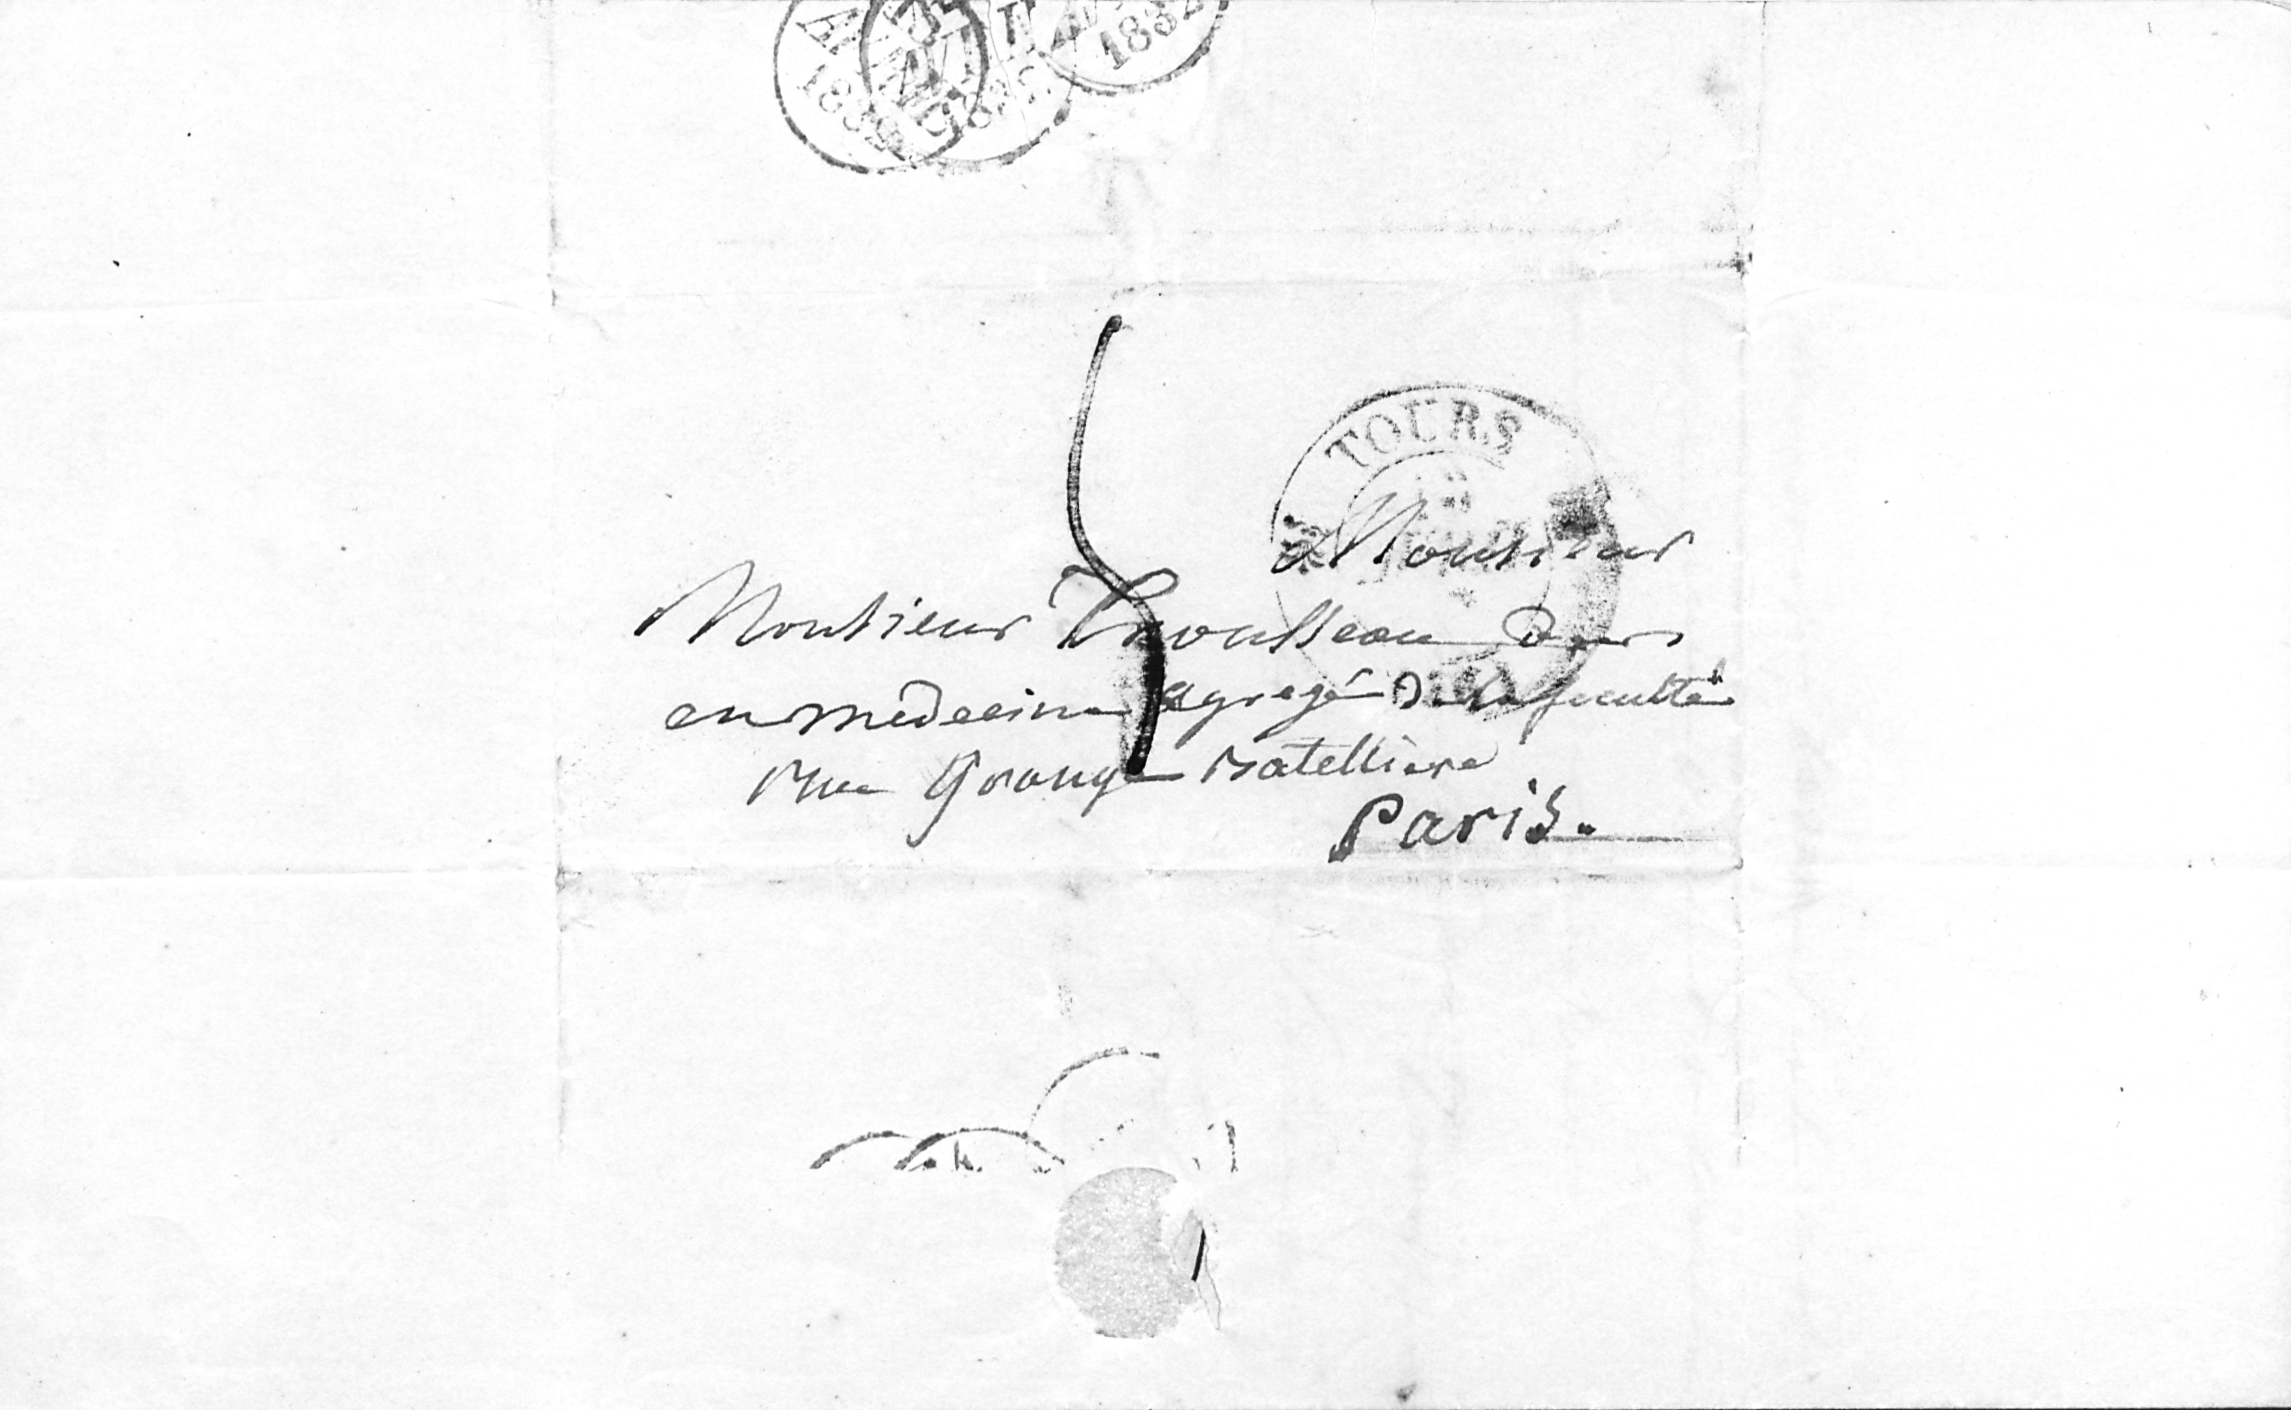 1832
1832
TOURS
Monsieur
Monsieur Trousseau Dor
en medecine agregé De la faculté
rue grange Batelliere
Paris.